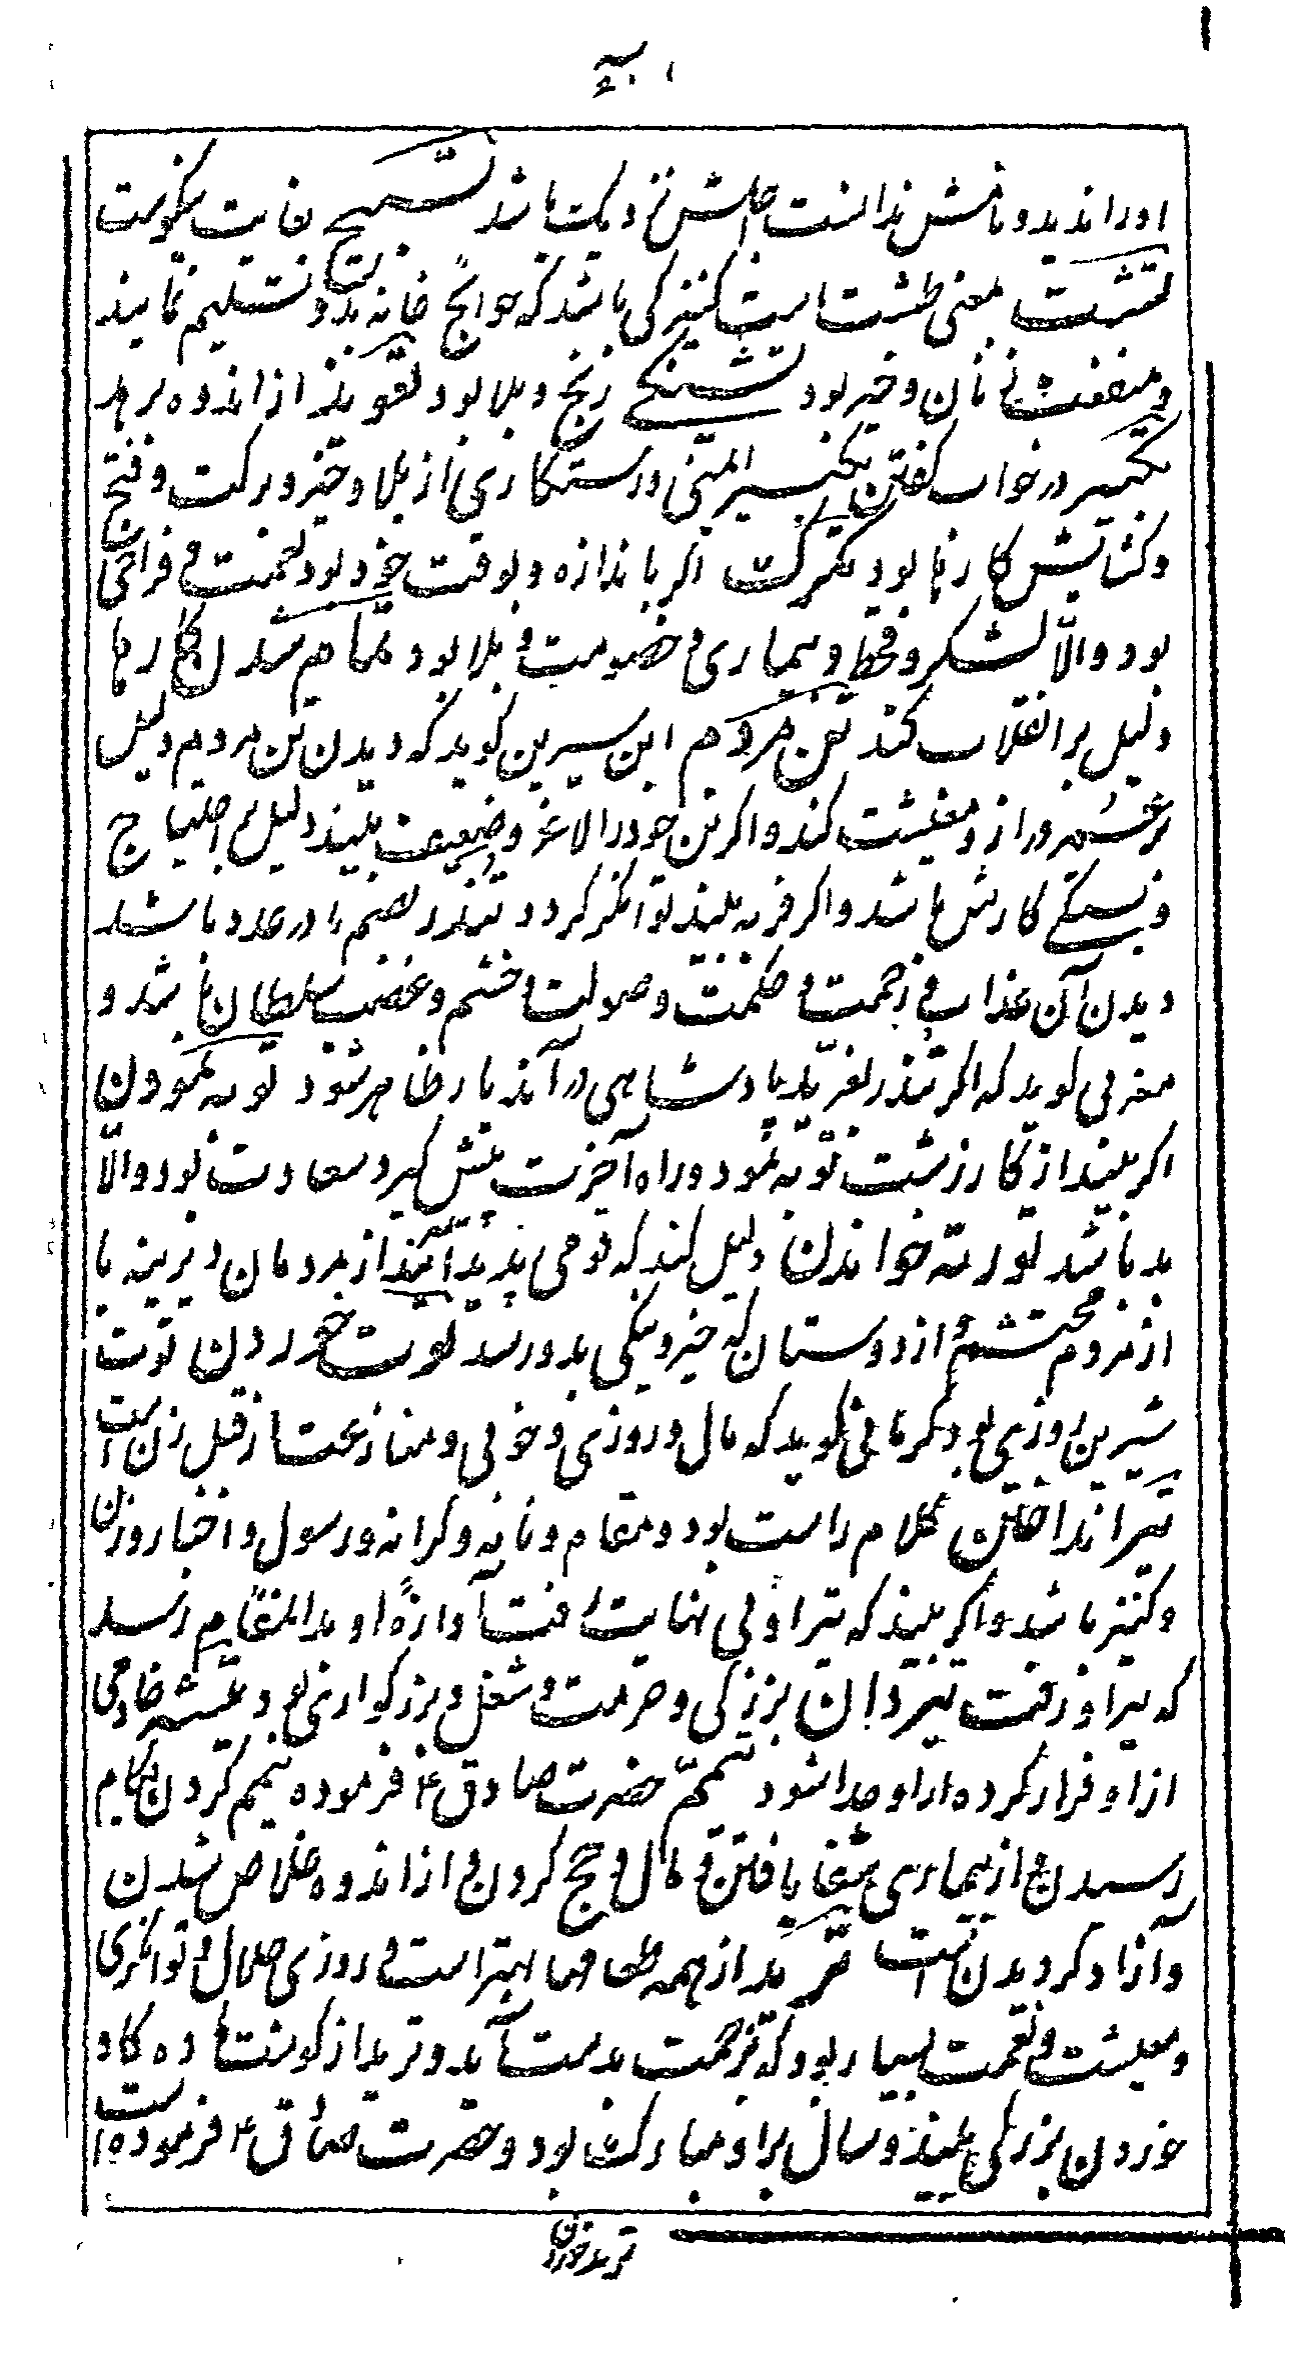 او را ندید و نامش ندانست اجلش نزدیک باشد تسبیح بغایت نیکوست
تشت بمعنی طشت است کنیزکی باشد که حوایج خانه بدو تسلیم نمایند
و میفغت نان و خیر بود تشنگی رنج و بلا بود تعویذ از اندوه برهد
تکبیر در خواب گفتن تکبیر ایمنی و رستگاری از بلا و خیر و برکت و فتح
و گشایش کارها بود تگرگ اگر باندازه و بوقت خود بود نعمت و فراخی
بود و الّا لشکر و قحط و بیماری و خصومت و بلا بود تمام شدن کارها
دلیل بر انقلاب کند تن مردم ابن سیرین گوید که دیدن تن مردم دلیل
بر عمر دراز و معیشت کند و اگر تن خود را لاغر و ضعیف بیند دلیل بر احتیاج
و بستگی کارش باشد و اگر فربه بیند توانگر گردد تندر بضم را در رعد و باشد
دیدن آن عذاب و زحمت و حکمت و صولت و خشم و غضب سلطان باشد و
مغربی گوید که اگر تندر بغرید پادشاهی در آنديار ظاهر شود توبه نمودن
اگر بیند از کار زشت توبه نمود و راه آخرت پیش گیرد سعادت بود و الّا
بد باشد تورته خواندن دلیل کند که قومی پدید آیند از مردمان دیرینه یا
از مردم محتشم و از دوستان که خیر و نیکی بدو رسد توت خوردن توت
شیرین روزی بود کرمانی گوید که مال و روزی و خوبی و منازعت از قبل زن است
تیر انداختن کلام راست بود و مقام و نامه و کرانه و رسول و اخبار و زن
و کنیز باشد و اگر بیند که تیر او بی نهایت رفت آوازهٔ او بدانمقام رسد
که تیر او رفت تیردان بزرگی و حرمت و شغل و بزرگواری بود تیشه خادمی
از او فرار کرده از او جدا شود تیمّم حضرت صادق ع فرموده تیمم کردن بکام
رسیدن و از بیماری شفا یافتن و مال و حج کردن و از اندوه خلاص شدن
و آزاد گردیدن است ترید از همه طعامها بهتر است و روزی حلال و توانگری
و معیشت و نعمت بسیار بود که بزحمت بدست آید و ترید از گوشت ماده گاو
خوردن بزرگی بیند و سال بر او مبارک بود و حضرت صادق ع فرموده است
ترید خوردن